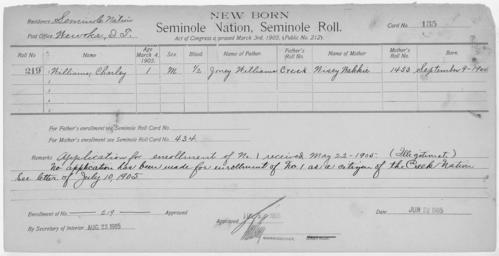 NEW BORN
Residence Seminole Nation
Seminole Nation, Seminole Roll.
Card No. 135
Post Office, Wewoka, I.T.
Act of Congress approved March 3rd, 1905, (Public No. 212).
Roll No. Name Age March 4, 1905. Sex. Blood. Name of Father. Father's Roll No. Name of Mother. Mother's Roll No. Born.
219 Williams, Charley 1 M 1/2 Williams Creek 1453 September 9-1904
For Father's enrollment see Seminole Roll Card No.
For Mother's enrollment see Seminole Roll Card No. 434.
Remarks Application for enrollment of No. 1 received May 22-1905. (Illegitimate)
No application has been made for enrollment of No. 1 as a citizen of the Creek Nation
See letter of July 10, 1905
Enrollment of No. 219 Approved
Approved
Date JUN 1905
By Secretary of Interior AUG 22 1905
COMMISSIONER.